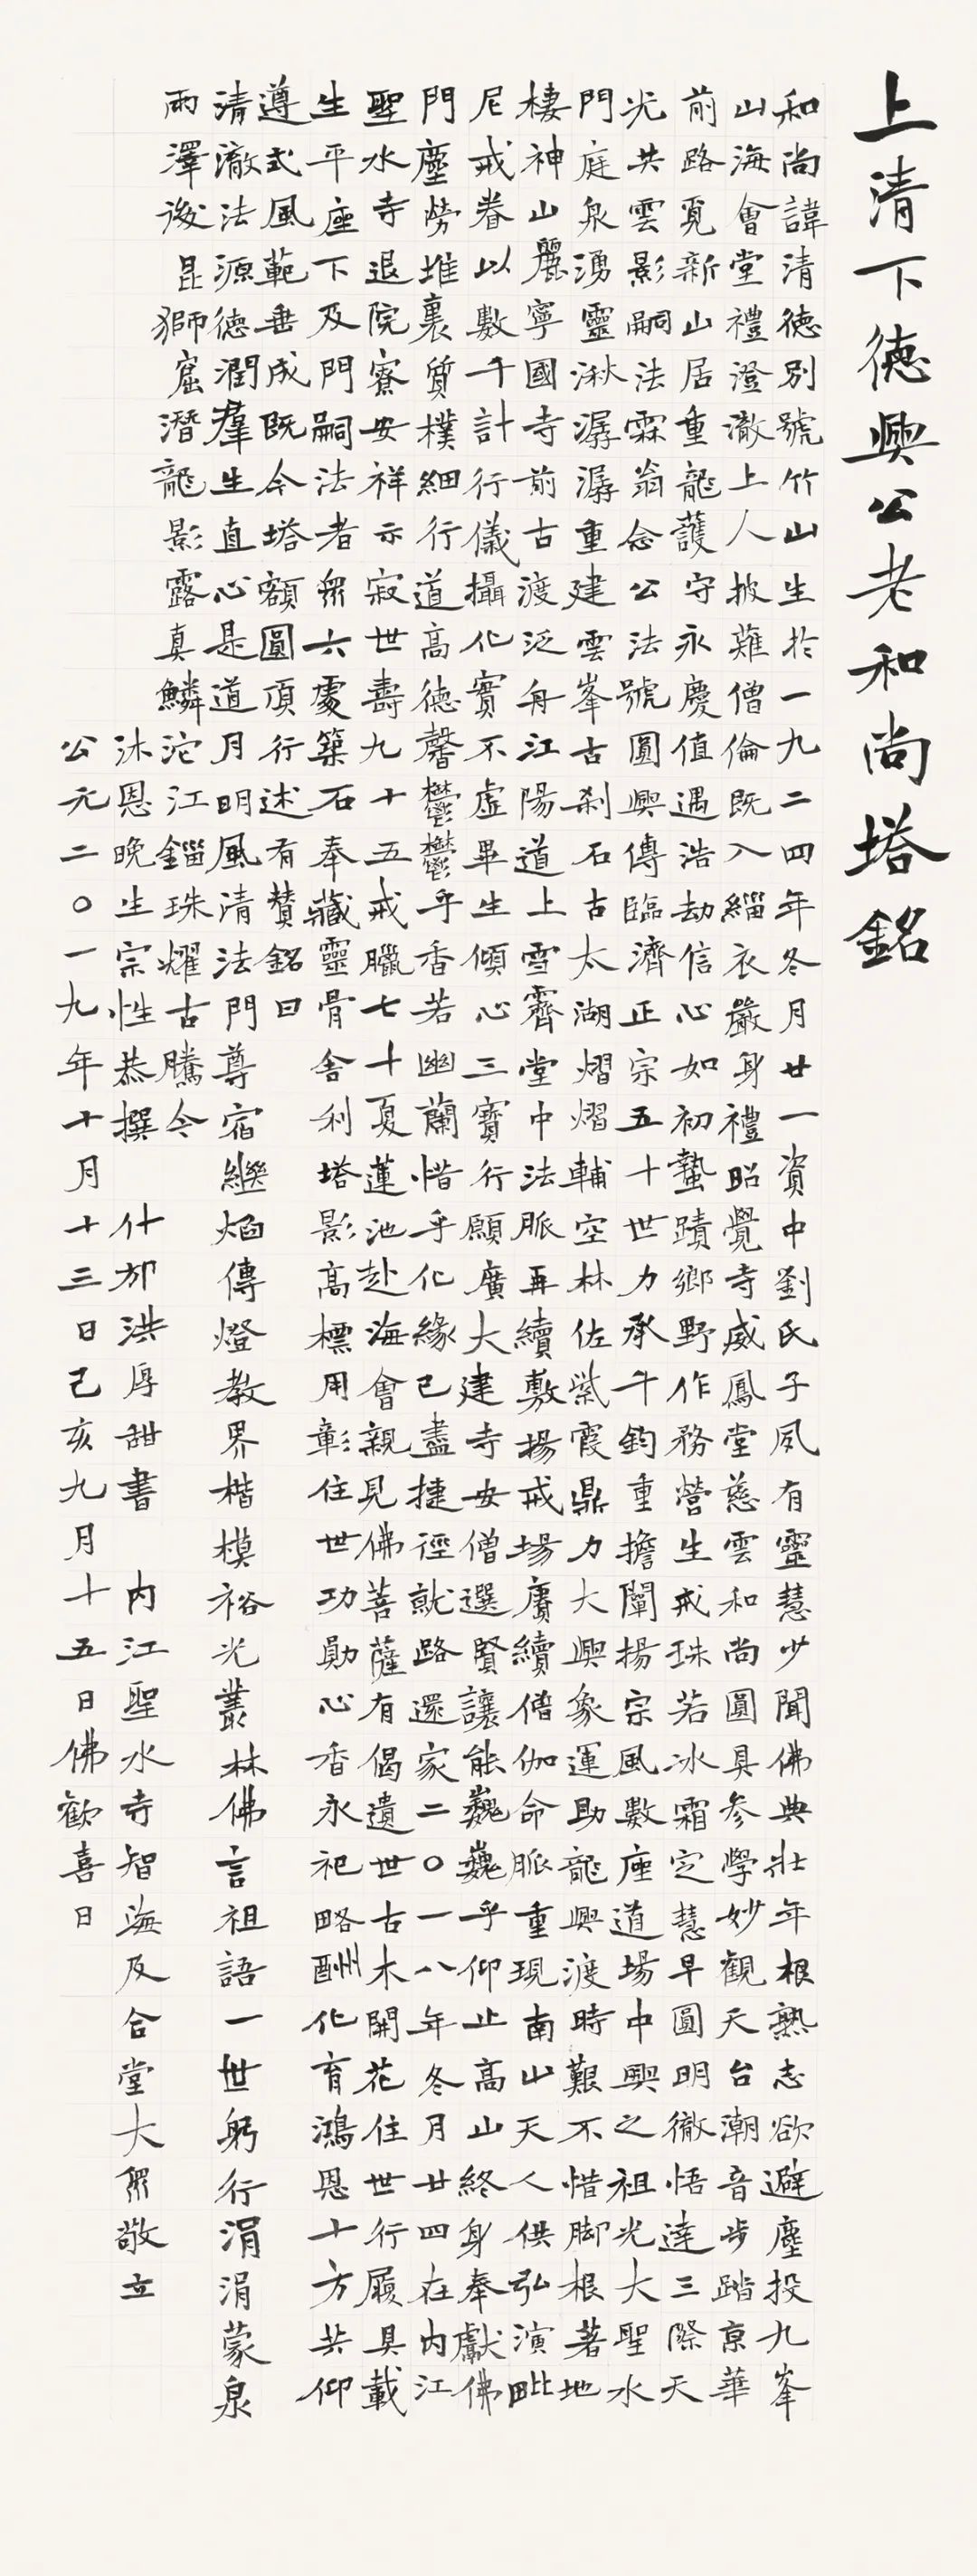 上清下德興公老和尚塔銘
和尚諱清德別號竹山生於一九二四年冬月廿一資中劉氏子夙有靈慧少聞佛典壯年根熟志欲避塵投九峯
山海會堂禮澄澈上人披薙僧倫既入緇衣嚴身禮昭覺寺威鳳堂慈雲和尚圓具參學妙觀天台潮音步踏京華
前路覓新山居重龍護守永慶值遇浩劫信心如初蟄蹟鄉野作務營生戒珠若冰霜定慧早圓明徹悟達三際天
光共雲影嗣法霖翁念公法號圓興傳臨濟正宗五十世力承千鈞重擔闡揚宗風數座道場中興之祖光大聖水
門庭泉湧靈湫潺潺重建雲峯古刹石古太湖熠熠輔空林佐紫霞鼎力大興象運助龍興渡時艱不惜脚根著地
棲神山麗寧國寺前古渡泛舟江陽道上雪霽堂中法脈再續敷揚戒場賡續僧伽命脈重現南山天人供弘演毗
尼戒眷以數千計行儀攝化實不虛畢生傾心三寶行願廣大建寺安僧選賢讓能巍巍乎仰止高山終身奉獻佛
門塵勞堆裏質樸細行道高德馨鬱鬱乎香若幽蘭惜乎化緣已盡捷徑就路還家二〇一八年冬月廿四在内江
聖水寺退院寮安祥示寂世壽九十五戒臘七十夏蓮池赴海會親見佛菩薩有偈遺世古木開花住世行履具載
生平座下及門嗣法者眾六處築石奉藏靈骨舍利塔影高標用彰住世功勛心香永祀略酬化育鴻恩十方共仰
遵式風範垂成既今塔額圓頂行述有贊銘曰
清澈法源德潤羣生直心是道月明風清法門尊宿繼焰傳燈教界楷模裕光叢林佛言祖語一世躬行涓涓蒙泉
雨澤後昆獅窟潛龍影露真鱗沱江錙珠耀古騰今
沐恩晚生宗性恭撰 什邡洪厚甜書 内江聖水寺智海及合堂大眾敬立
公元二〇一九年十月十三日己亥九月十五日佛歡喜日